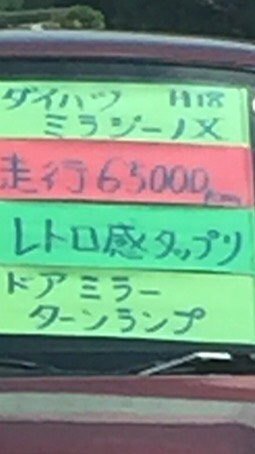 ダイハツ H18
ミラジーノX
走行65000km
レトロ感タップリ
ドアミラー
ターンランプ